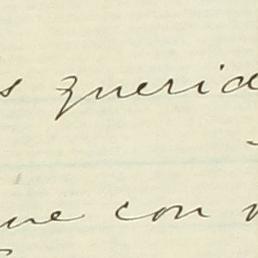 s querid
ue con